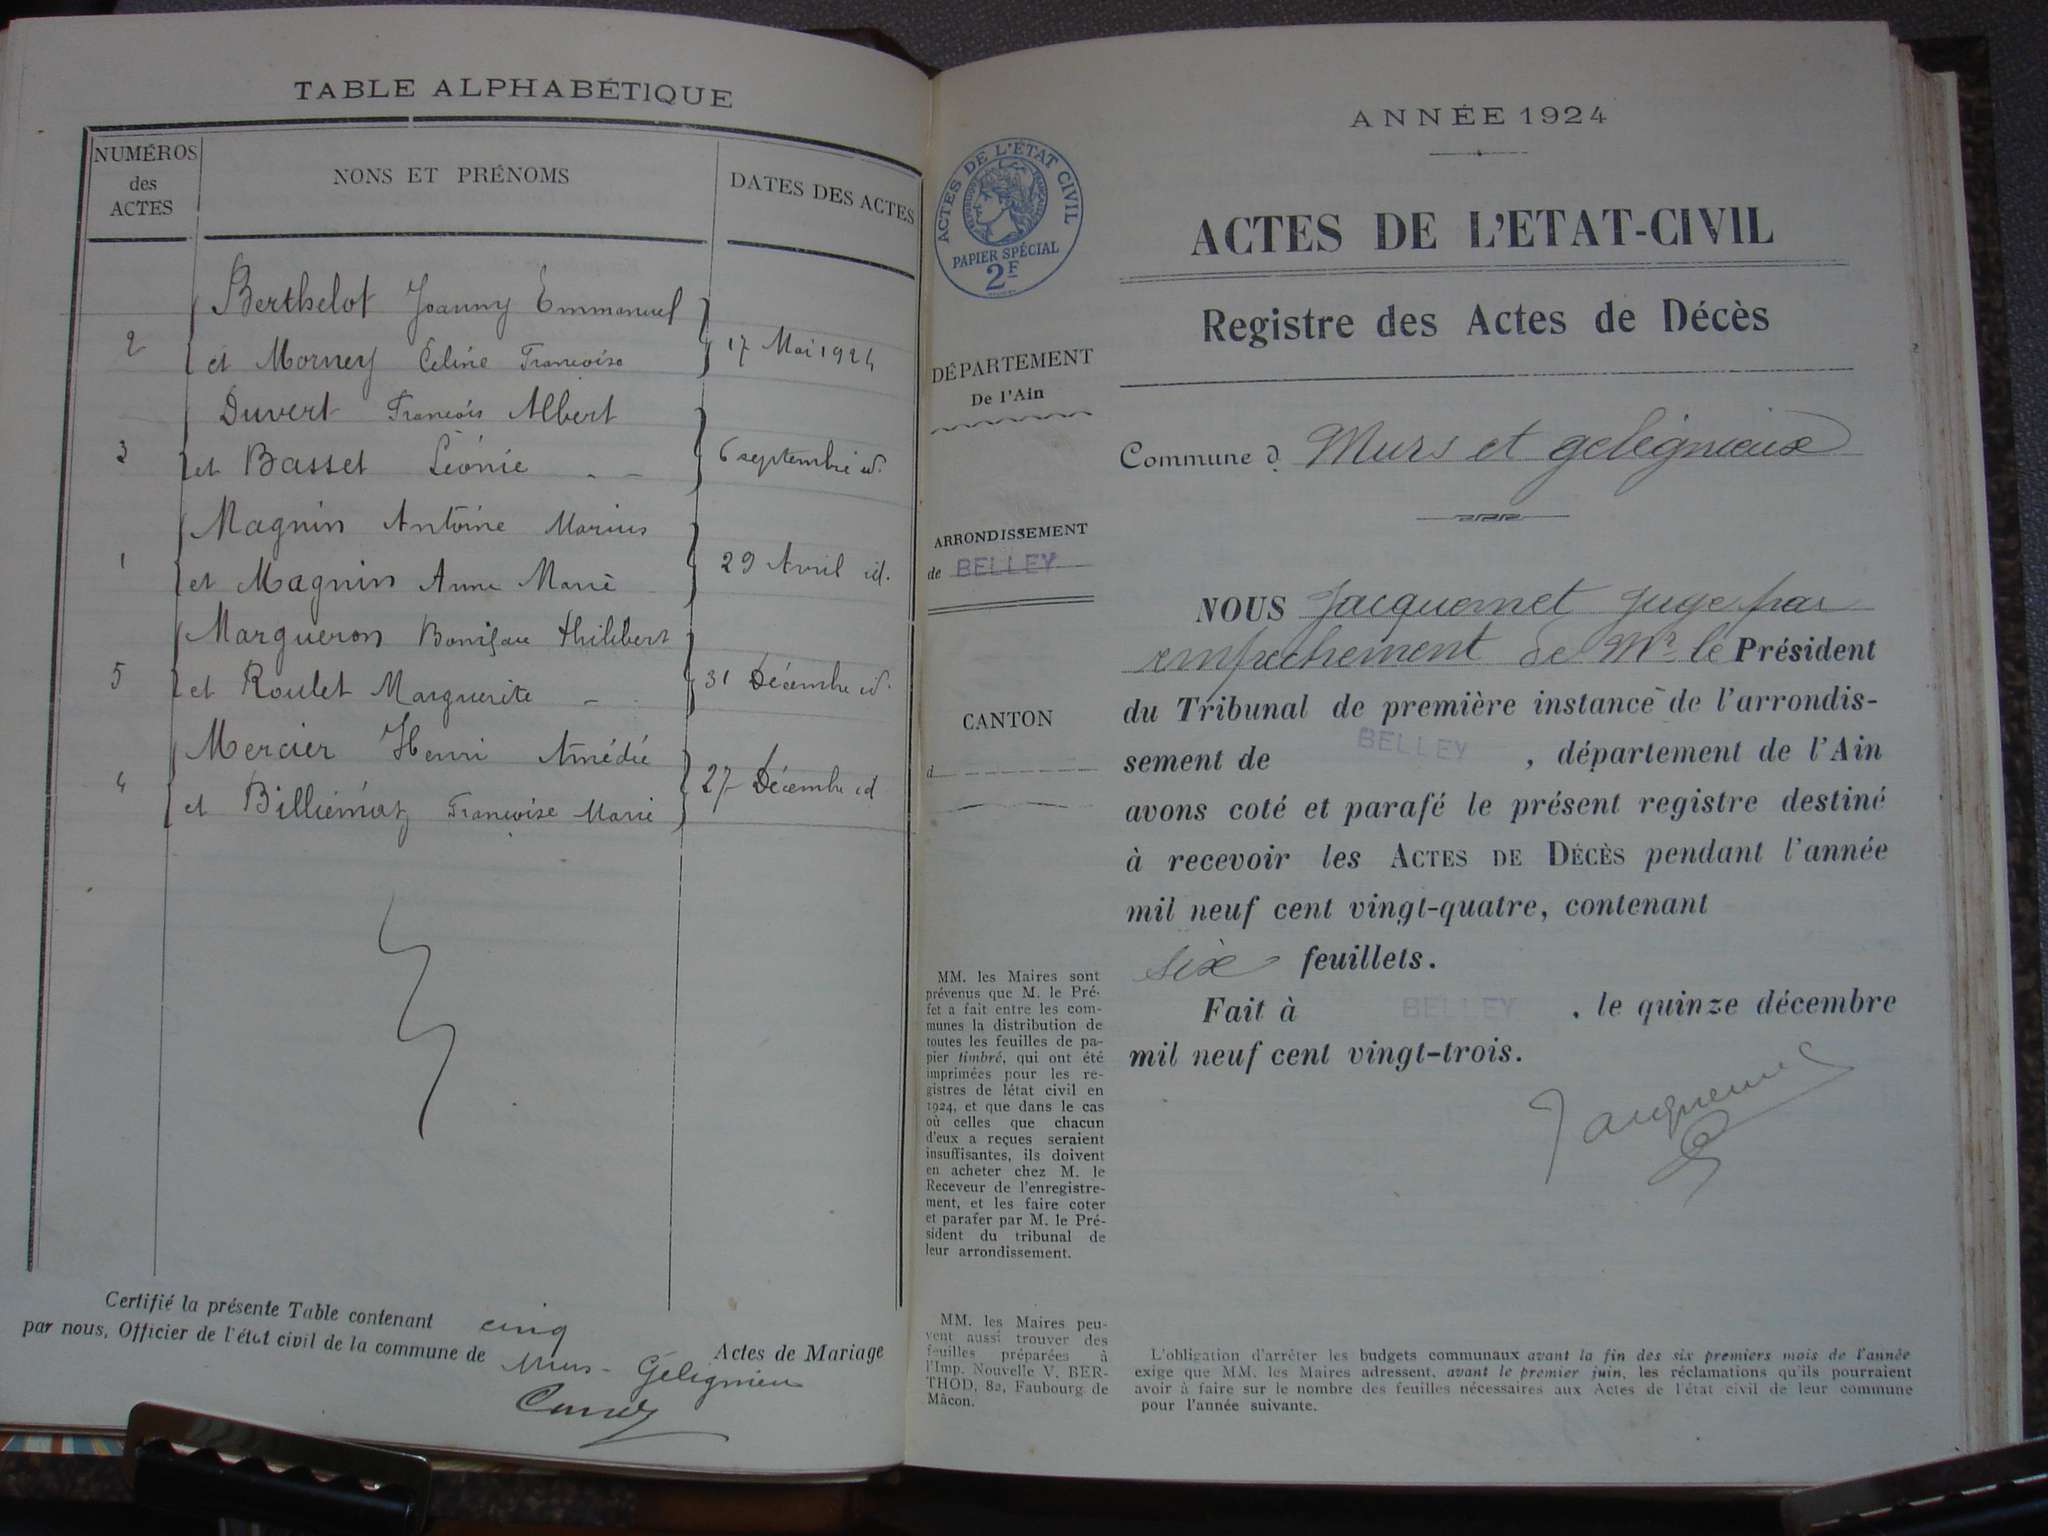 TABLE ALPHABÉTIQUE
NUMÉROS
des
ACTES
NONS ET PRÉNOMS
DATES DES ACTES
Berthelot Joanny Emmanuel
2 et Morney Céline Françoise 17 Mai 1924
Duvert François Albert
3 et Basset Léonie 6 septembre id.
Magnin Antoine Marius
1 et Magnin Anne Marie 29 Avril id.
Margueron Philibert
5 et Roulet Marguerite 31 Décembre id.
Mercier Henri Amédée
4 et Billiémaz Françoise Marie 27 Décembre id
Certifié la présente Table contenant cinq Actes de Mariage
par nous, Officier de l'état civil de la commune de Murs-Gélignieu
ACTES DE L'ÉTAT CIVIL
PAPIER SPÉCIAL
2F
DÉPARTEMENT
De l'Ain
ARRONDISSEMENT
de BELLEY
CANTON
d
MM. les Maires sont
prévenus que M. le Pré-
fet a fait entre les com-
munes la distribution de
toutes les feuilles de pa-
pier timbré, qui ont été
imprimées pour les re-
gistres de létat civil en
1924, et que dans le cas
où celles que chacun
d'eux a reçues seraient
insuffisantes, ils doivent
en acheter chez M. le
Receveur de l'enregistre-
ment, et les faire coter
et parafer par M. le Pré-
sident du tribunal de
leur arrondissement.
MM. les Maires peu-
vent aussi trouver des
feuilles préparées à
l'Imp. Nouvelle V. BER-
THOD, 82, Faubourg de
Mâcon.
ANNÉE 1924
ACTES DE L'ETAT-CIVIL
Registre des Actes de Décès
Commune d Murs et gelignieux
NOUS Jacquemet juge par
empechement de Mr le Président
du Tribunal de première instance de l'arrondis-
sement de BELLEY, département de l'Ain
avons coté et parafé le présent registre destiné
à recevoir les ACTES DE DÉCÈS pendant l'année
mil neuf cent vingt-quatre, contenant
six feuillets.
Fait à BELLEY, le quinze décembre
mil neuf cent vingt-trois.
Jacquemet
L'obligation d'arrêter les budgets communaux avant la fin des six premiers mois de l'année
exige que MM. les Maires adressent, avant le premier juin, les réclamations qu'ils pourraient
avoir à faire sur le nombre des feuilles nécessaires aux Actes de l'état civil de leur commune
pour l'année suivante.